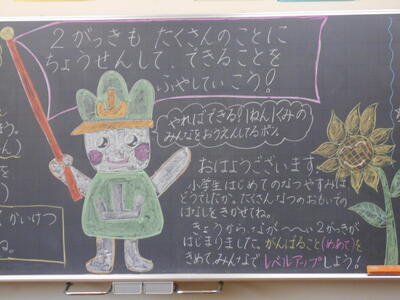 2がっきも たくさんのことに
ちょうせんして、できることを
ふやしていこう!
やればできる!1ねん1くみの
みんなをおうえんしてるポン。
おはようございます。
小学生はじめてのなつやすみは
どうでしたか。たくさんなつのおもいでの
はなしをきかせてね。
きょうから、なが〜〜い2がっきが
はじまりました。がんばること(めあて)を
きめて、みんなでレベルアップしよう!
かいけつ